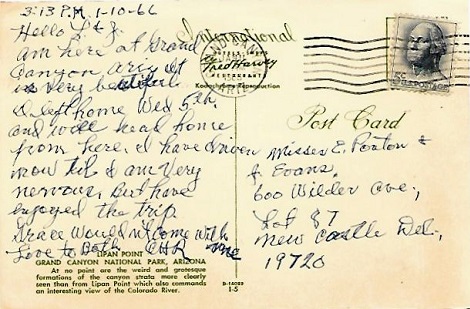 3:13 P.M. 1-10-66
Hello
am here at Grand
Canyon, It
is very beautiful
I left home Wed 5th,
and will head home
from here. I have driven
now til I am very
nervous, But have
enjoyed the trip
Grace would not come with me
Love to Both
LIPAN POINT
GRAND CANYON NATIONAL PARK, ARIZONA
At no point are the weird and grotesque
formations of the canyon strata more clearly
seen than from Lipan Point which also commands
an interesting view of the Colorado River.
International
Fred Harvey
Kodachrome Reproduction
D-14082
1-5
5¢ U.S. POSTAGE
Post Card
Misses E. Ponton &
J. Evans,
600 Wilder Ave.,
Lot 87
New Castle Del.,
19720